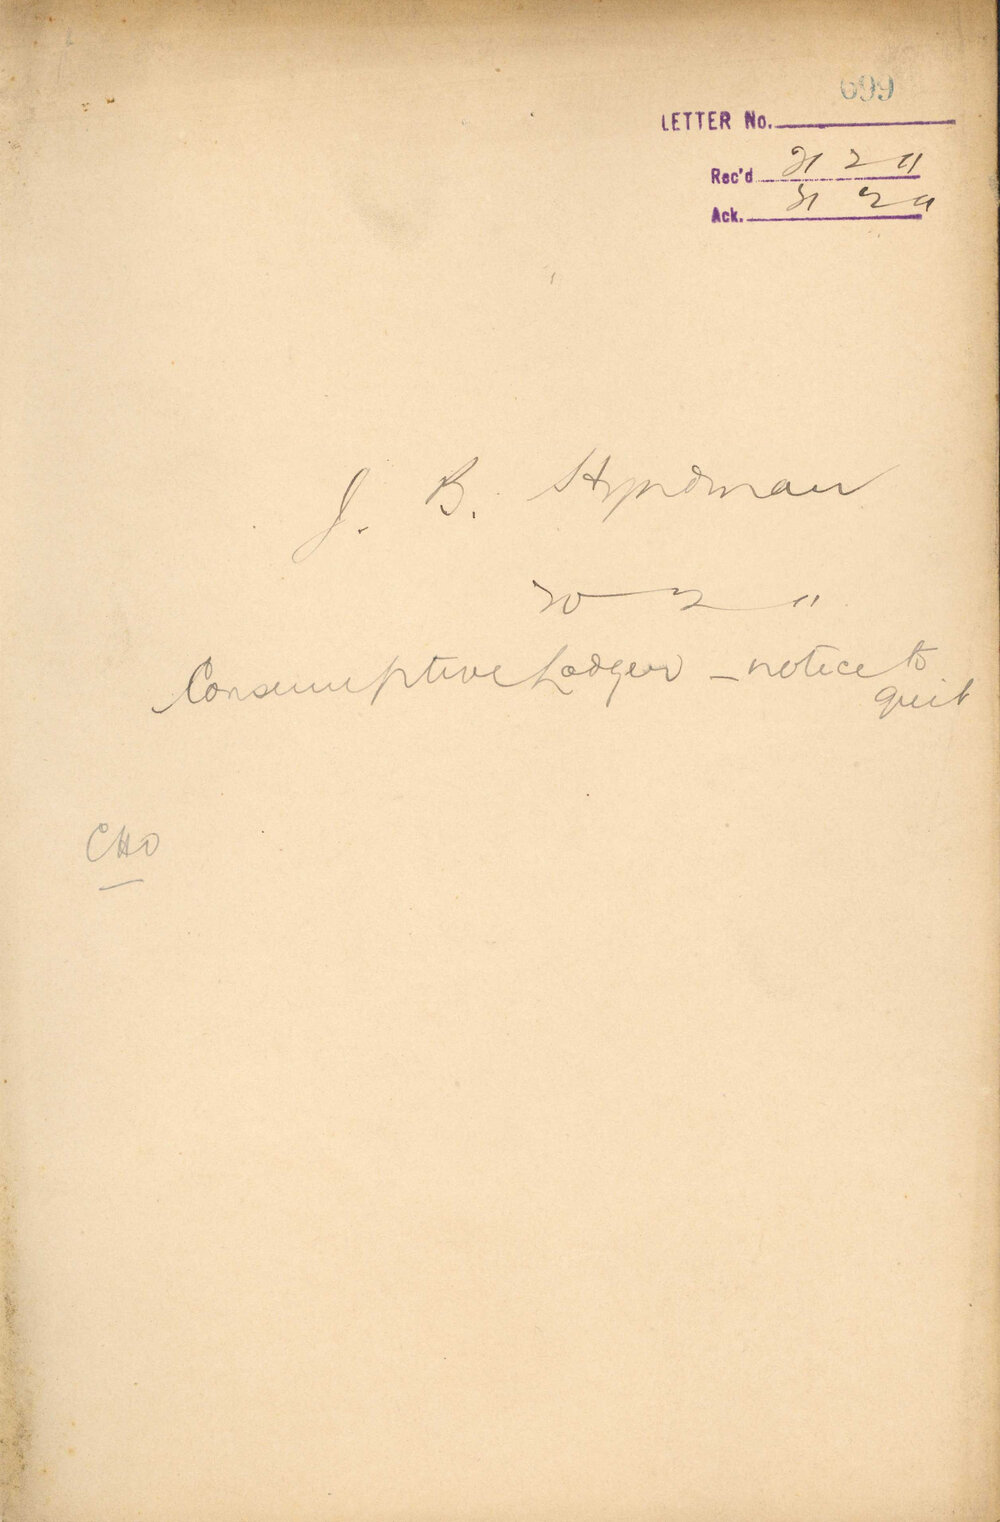 699
LETTER No.
Rec'd 21 2 11
Ack. 21 2 11
J. B. Hyndman
20 - 2 - 11
Consumptive Lodger - notice to
quit
CHO